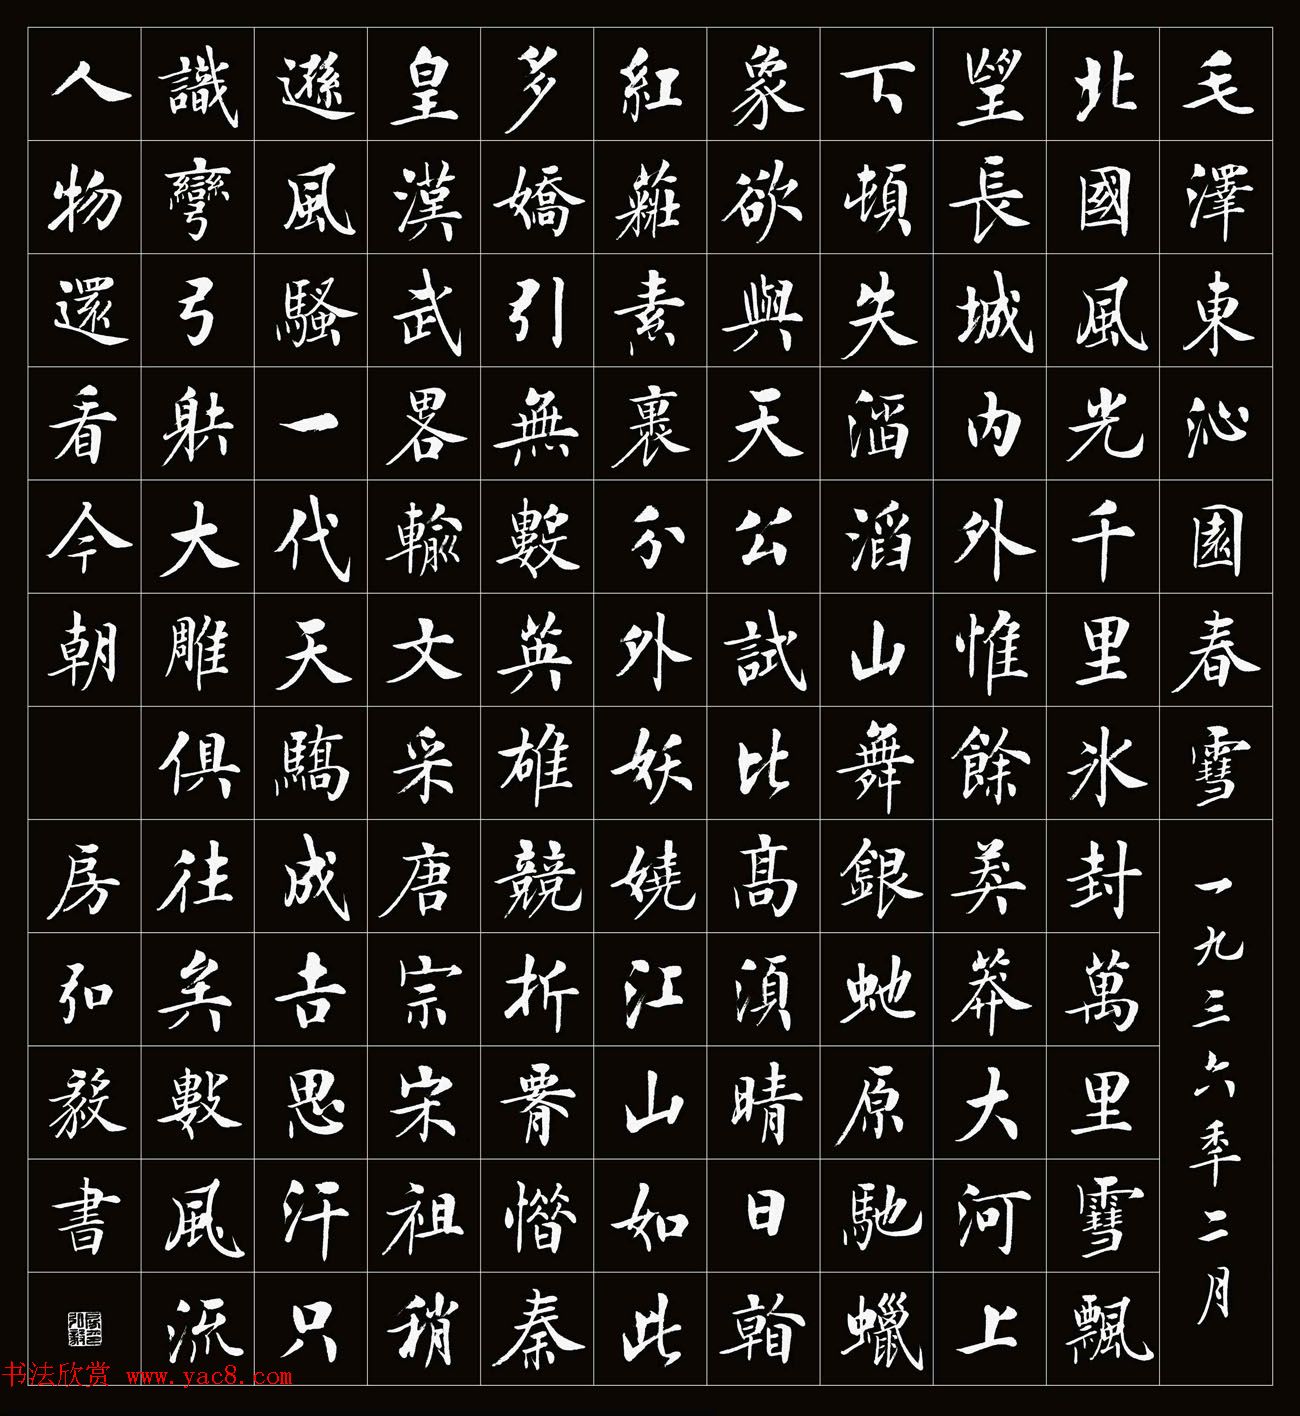 毛澤東沁園春雪
一九三六秊二月
北國風光千里冰封萬里雪飄
望長城內外惟餘莽莽大河上
下頓失滔滔山舞銀蛇原馳蠟
象欲與天公試比高須晴日看
紅裝素裹分外妖嬈江山如此
多嬌引無數英雄競折腰惜秦
皇漢武畧輸文采唐宗宋祖稍
遜風騷一代天驕成吉思汗只
識彎弓射大雕俱往矣數風流
人物還看今朝
房弘毅書
书法欣赏 www.yac8.com